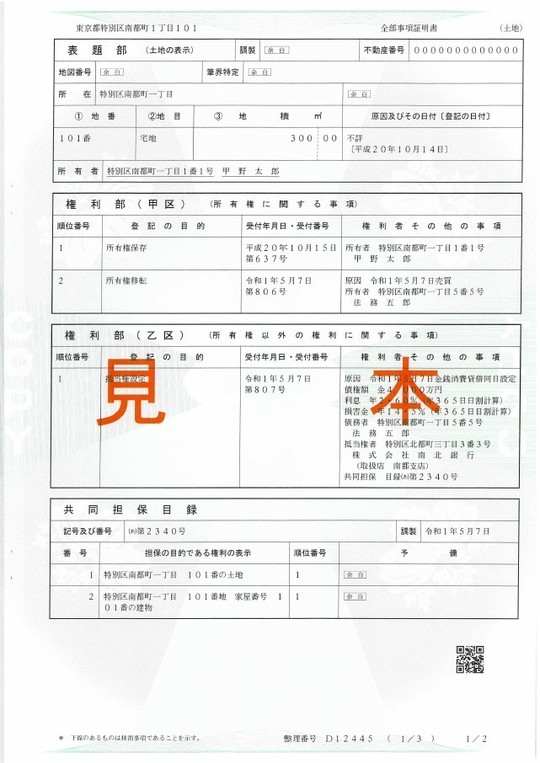 東京都特別区南都町1丁目101 全部事項証明書 (土地)
表題部 (土地の表示) 調製 余白 不動産番号 0000000000000
地図番号 余白 筆界特定 余白
所在 特別区南都町一丁目 余白
①地番 ②地目 ③地積㎡ 原因及びその日付〔登記の日付〕
101番 宅地 300:00 不詳
〔平成20年10月14日〕
所有者 特別区南都町一丁目1番1号 甲野太郎
権利部(甲区) (所有権に関する事項)
順位番号 登記の目的 受付年月日・受付番号 権利者その他の事項
1 所有権保存 平成20年10月15日 所有者 特別区南都町一丁目1番1号
第637号 甲野太郎
2 所有権移転 令和1年5月7日 原因 令和1年5月7日売買
第806号 所有者 特別区南都町一丁目5番5号
法務五郎
権利部(乙区) (所有権以外の権利に関する事項)
順位番号 登記の目的 受付年月日・受付番号 権利者その他の事項
1 抵当権設定 令和1年5月7日 原因 令和1年5月7日金銭消費貸借同日設定
第807号 債権額 金4, 万円
利息 年2・60%(年365日日割計算)
損害金 年14・5%(年365日日割計算)
債務者 特別区南都町一丁目5番5号
法務五郎
抵当権者 特別区北都町三丁目3番3号
株式会社南北銀行
(取扱店 南都支店)
共同担保 目録㈲第2340号
見本
共同担保目録
記号及び番号 ㈲第2340号 調製 令和1年5月7日
番号 担保の目的である権利の表示 順位番号 予備
1 特別区南都町一丁目 101番の土地 1 余白
2 特別区南都町一丁目 101番地 家屋番号 1 1 余白
01番の建物
* 下線のあるものは抹消事項であることを示す。 整理番号 D12445 (1/3) 1/2